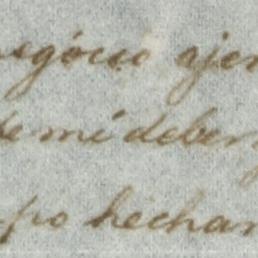 negócio ajen
de mi deber,
po hechan